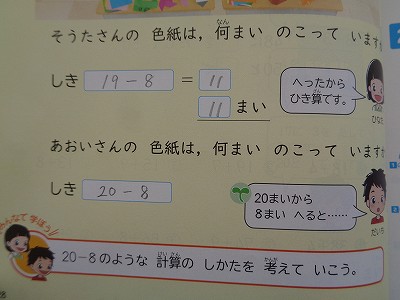 そうたさんの 色紙は，何まい のこって います
なん
しき 19－8 ＝ 11
11 まい
へったから
ひき算です。
ひなた
あおいさんの 色紙は，何まい のこって います
しき 20－8
20まいから
8まい へると……
だいち
みんなで 学ぼう!!
けいさん かんが
20－8のような 計算の しかたを 考えて いこう。